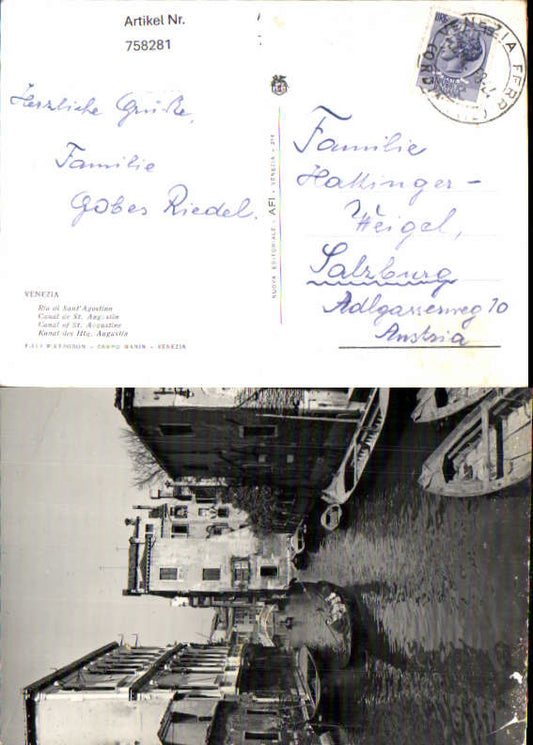 Artikel Nr.
758281
VENEZIA FERR
Herzliche Grüße,
Familie
Gobes Riedel.
Familie
Hatzinger-
Weigel,
Salzburg
Adlgasserweg 10
Austria
NUOVA EDITORIALE - AFI - VENEZIA - 214
VENEZIA
Rio di Sant'Agostino
Canal de St. Augustin
Canal of St. Augustine
Kanal des Hlg. Augustin
CAMPO MANIN - VENEZIA